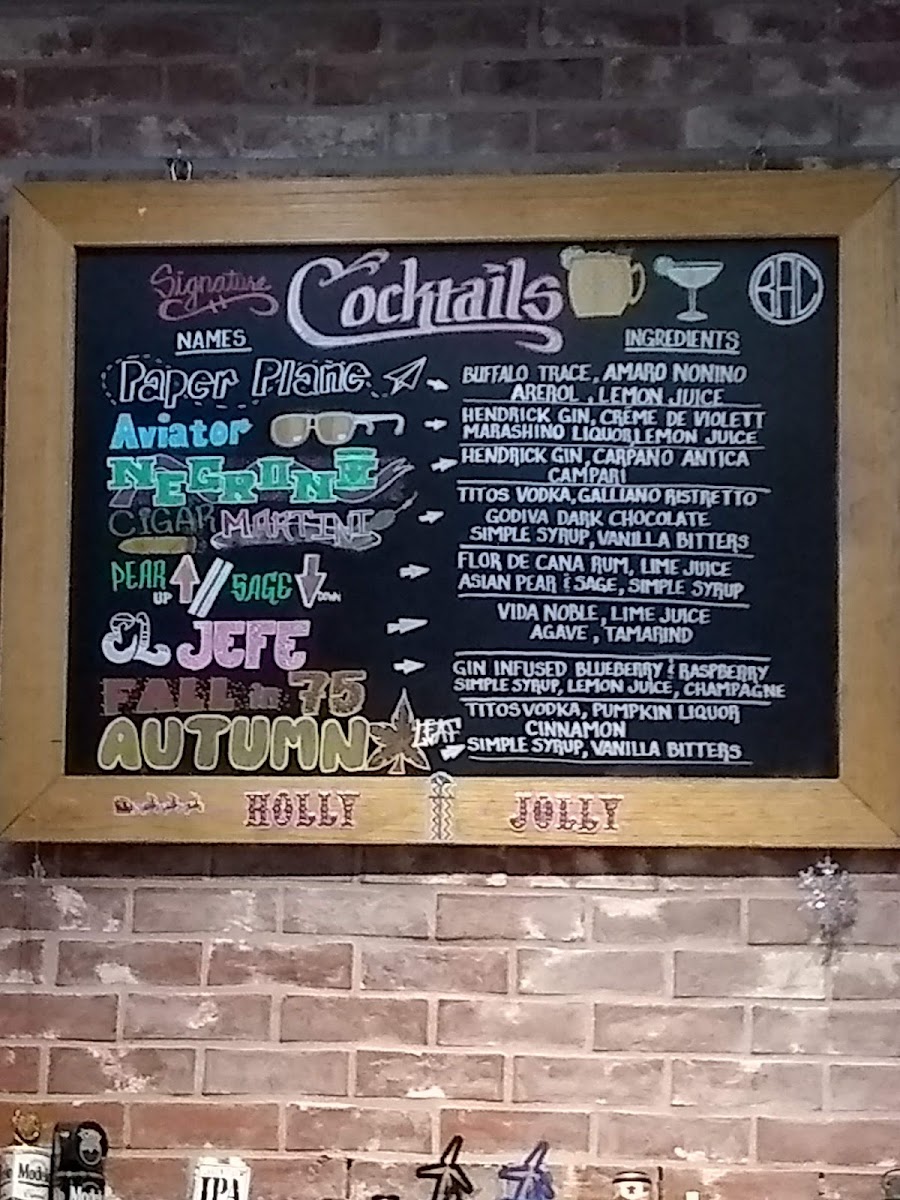 Signature Cocktails BAC
NAMES INGREDIENTS
Paper Plane BUFFALO TRACE, AMARO NONINO
AREROL, LEMON JUICE
Aviator HENDRICK GIN, CRÈME DE VIOLETT
MARASHINO LIQUOR, LEMON JUICE
NEGRONI HENDRICK GIN, CARPANO ANTICA
CAMPARI
CIGAR MARTINI TITOS VODKA, GALLIANO RISTRETTO
GODIVA DARK CHOCOLATE
SIMPLE SYRUP, VANILLA BITTERS
PEAR UP // SAGE DOWN FLOR DE CANA RUM, LIME JUICE
ASIAN PEAR & SAGE, SIMPLE SYRUP
EL JEFE VIDA NOBLE, LIME JUICE
AGAVE, TAMARIND
FALL in 75 GIN INFUSED BLUEBERRY & RASPBERRY
SIMPLE SYRUP, LEMON JUICE, CHAMPAGNE
AUTUMN LEAF TITOS VODKA, PUMPKIN LIQUOR
CINNAMON
SIMPLE SYRUP, VANILLA BITTERS
HOLLY JOLLY
IPA